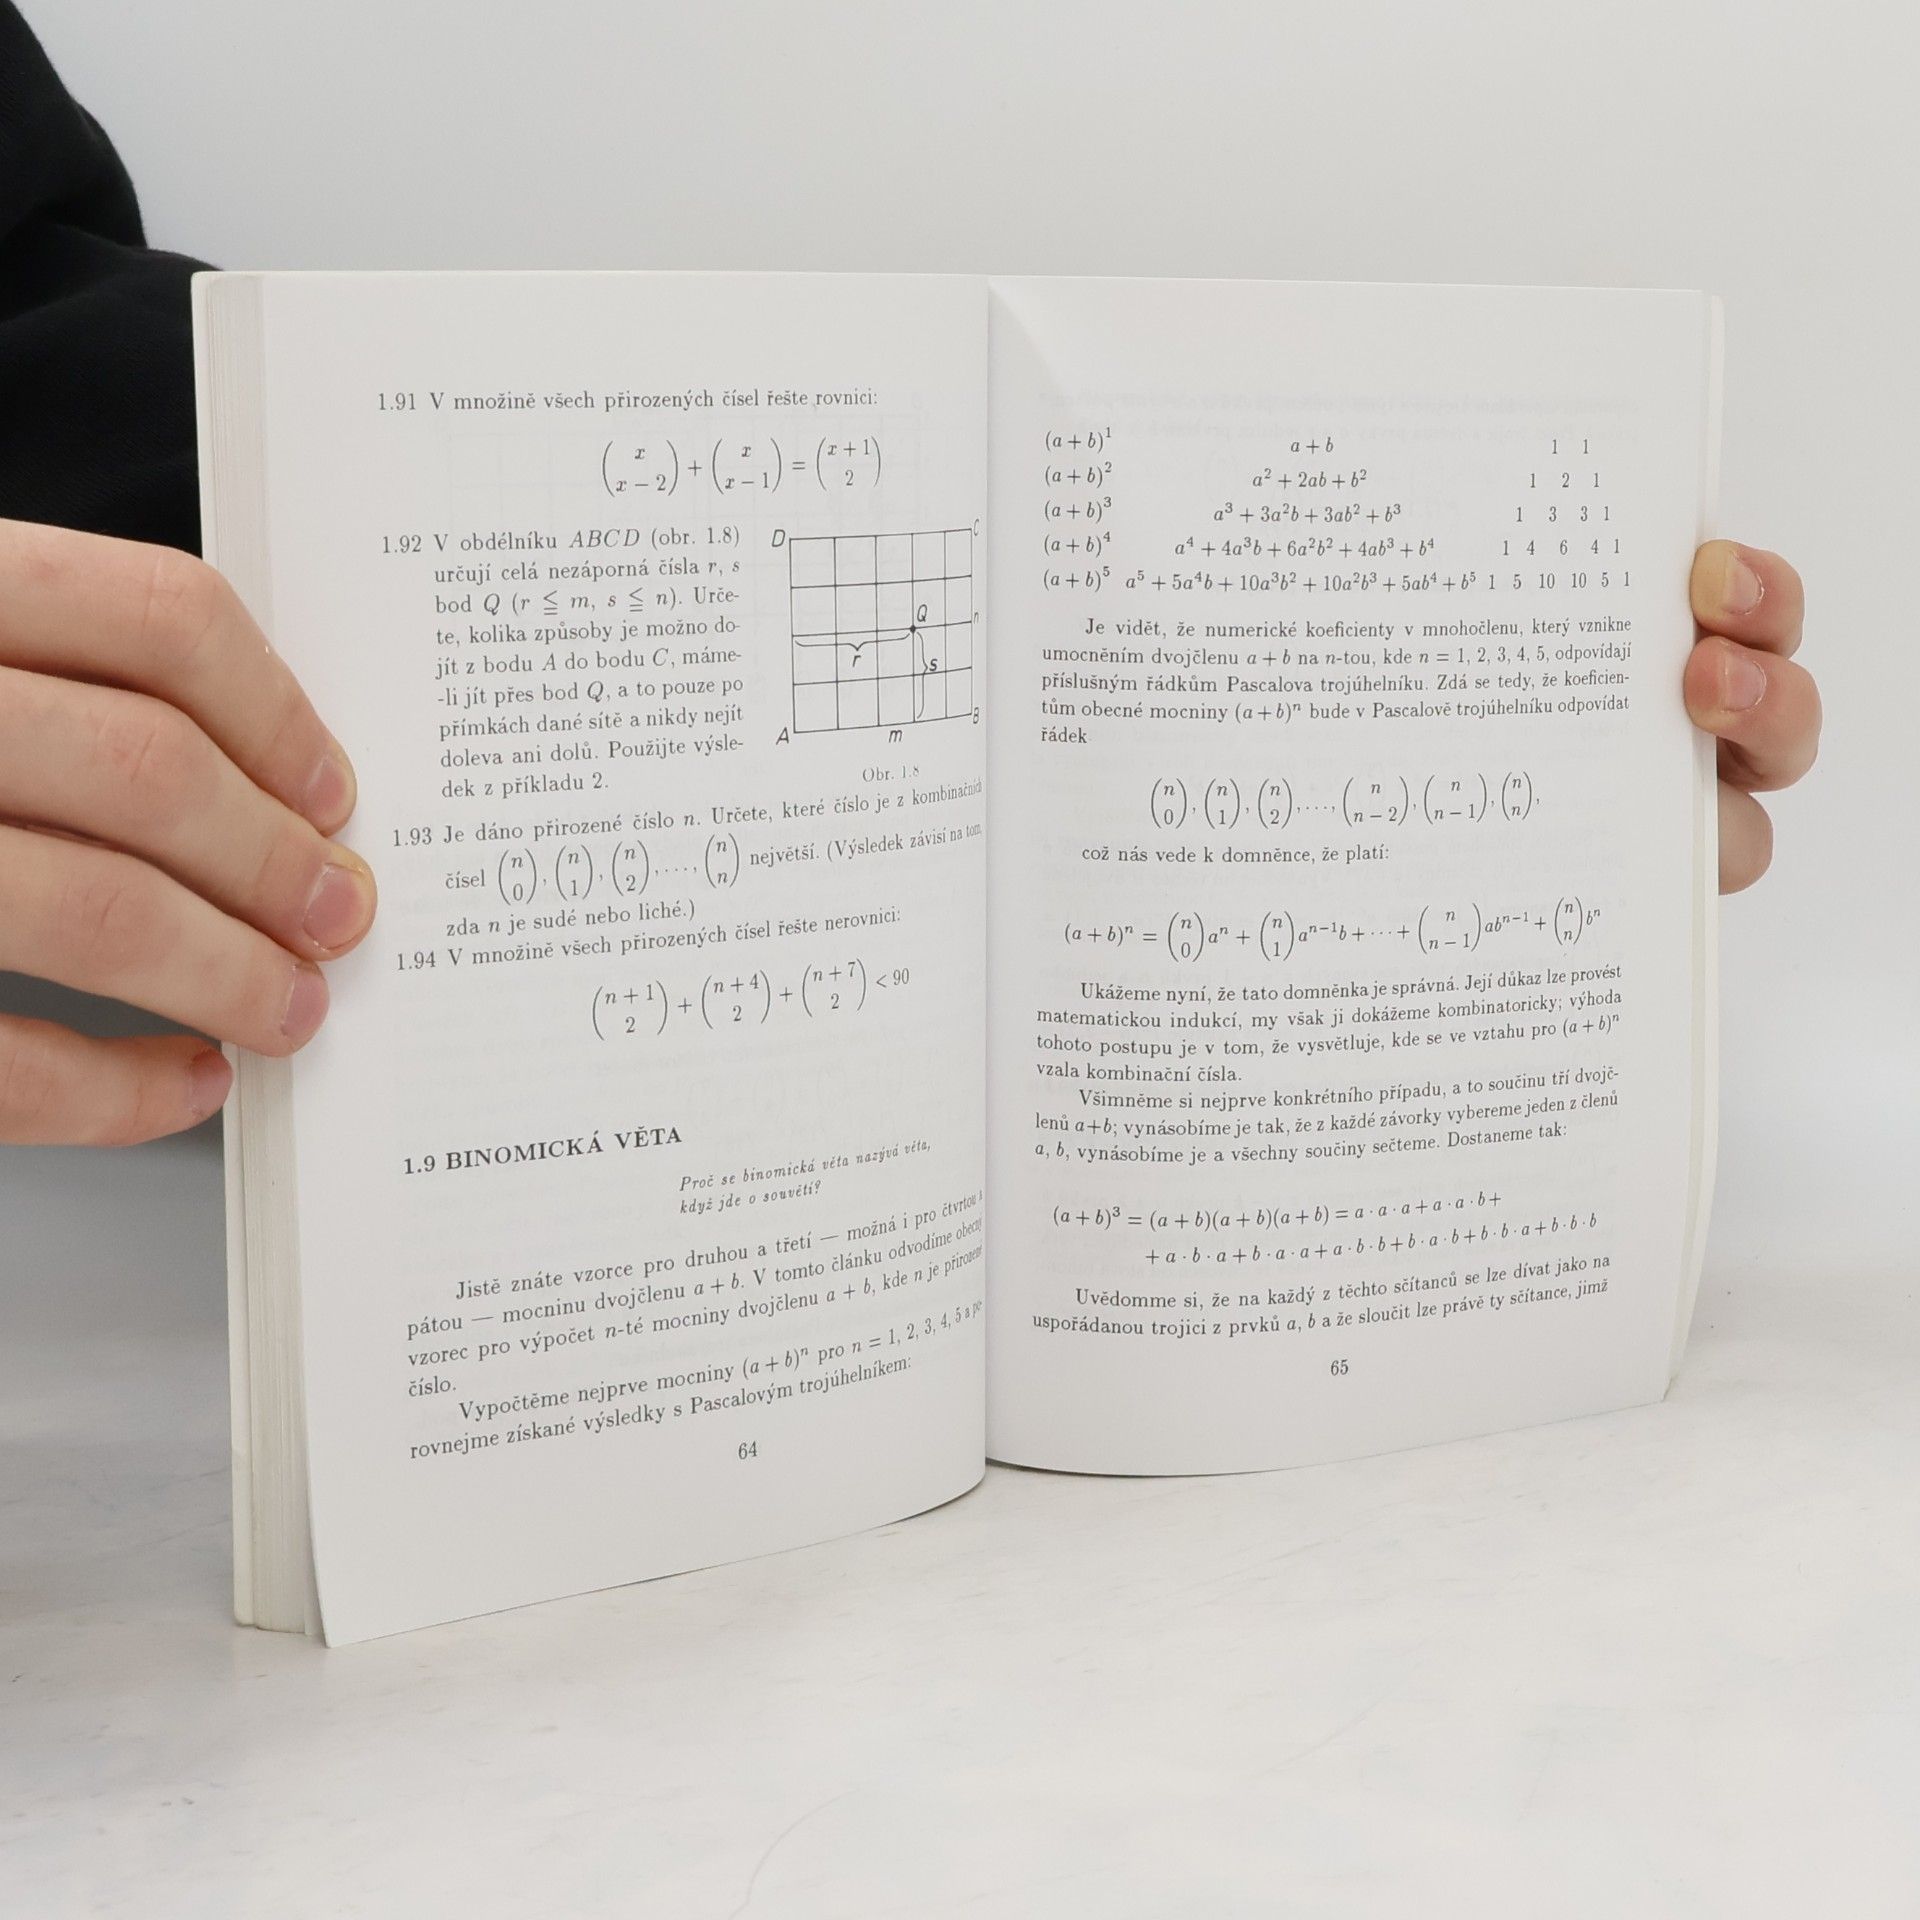 1.91 V množině všech přirozených čísel řešte rovnici:
(x x − 2) + (x x − 1) = (x + 1 2)
1.92 V obdélníku ABCD (obr. 1.8)
určují celá nezáporná čísla r, s
bod Q (r ≦ m, s ≦ n). Urče-
te, kolika způsoby je možno do-
jít z bodu A do bodu C, máme-
-li jít přes bod Q, a to pouze po
přímkách dané sítě a nikdy nejít
doleva ani dolů. Použijte výsle-
dek z příkladu 2.
D C
Q n
r s
A m B
Obr. 1.8
1.93 Je dáno přirozené číslo n. Určete, které číslo je z kombinačních
čísel (n 0), (n 1), (n 2), ..., (n n) největší. (Výsledek závisí na tom,
zda n je sudé nebo liché.)
1.94 V množině všech přirozených čísel řešte nerovnici:
(n + 1 2) + (n + 4 2) + (n + 7 2) < 90
1.9 BINOMICKÁ VĚTA
Proč se binomická věta nazývá věta,
když jde o souvětí?
Jistě znáte vzorce pro druhou a třetí — možná i pro čtvrtou a
pátou — mocninu dvojčlenu a + b. V tomto článku odvodíme obecný
vzorec pro výpočet n-té mocniny dvojčlenu a + b, kde n je přirozené
číslo.
Vypočtěme nejprve mocniny (a + b)ⁿ pro n = 1, 2, 3, 4, 5 a po-
rovnejme získané výsledky s Pascalovým trojúhelníkem:
64
(a + b)¹ a + b 1 1
(a + b)² a² + 2ab + b² 1 2 1
(a + b)³ a³ + 3a²b + 3ab² + b³ 1 3 3 1
(a + b)⁴ a⁴ + 4a³b + 6a²b² + 4ab³ + b⁴ 1 4 6 4 1
(a + b)⁵ a⁵ + 5a⁴b + 10a³b² + 10a²b³ + 5ab⁴ + b⁵ 1 5 10 10 5 1
Je vidět, že numerické koeficienty v mnohočlenu, který vznikne
umocněním dvojčlenu a + b na n-tou, kde n = 1, 2, 3, 4, 5, odpovídají
příslušným řádkům Pascalova trojúhelníku. Zdá se tedy, že koeficien-
tům obecné mocniny (a + b)ⁿ bude v Pascalově trojúhelníku odpovídat
řádek
(n 0), (n 1), (n 2), ..., (n n − 2), (n n − 1), (n n),
což nás vede k domněnce, že platí:
(a + b)ⁿ = (n 0)aⁿ + (n 1)aⁿ⁻¹b + ··· + (n n − 1)abⁿ⁻¹ + (n n)bⁿ
Ukážeme nyní, že tato domněnka je správná. Její důkaz lze provést
matematickou indukcí, my však ji dokážeme kombinatoricky; výhoda
tohoto postupu je v tom, že vysvětluje, kde se ve vztahu pro (a + b)ⁿ
vzala kombinační čísla.
Všimněme si nejprve konkrétního případu, a to součinu tří dvojč-
lenů a+b; vynásobíme je tak, že z každé závorky vybereme jeden z členů
a, b, vynásobíme je a všechny součiny sečteme. Dostaneme tak:
(a + b)³ = (a + b)(a + b)(a + b) = a · a · a + a · a · b +
+ a · b · a + b · a · a + a · b · b + b · a · b + b · b · a + b · b · b
Uvědomme si, že na každý z těchto sčítanců se lze dívat jako na
uspořádanou trojici z prvků a, b a že sloučit lze právě ty sčítance, jimž
65